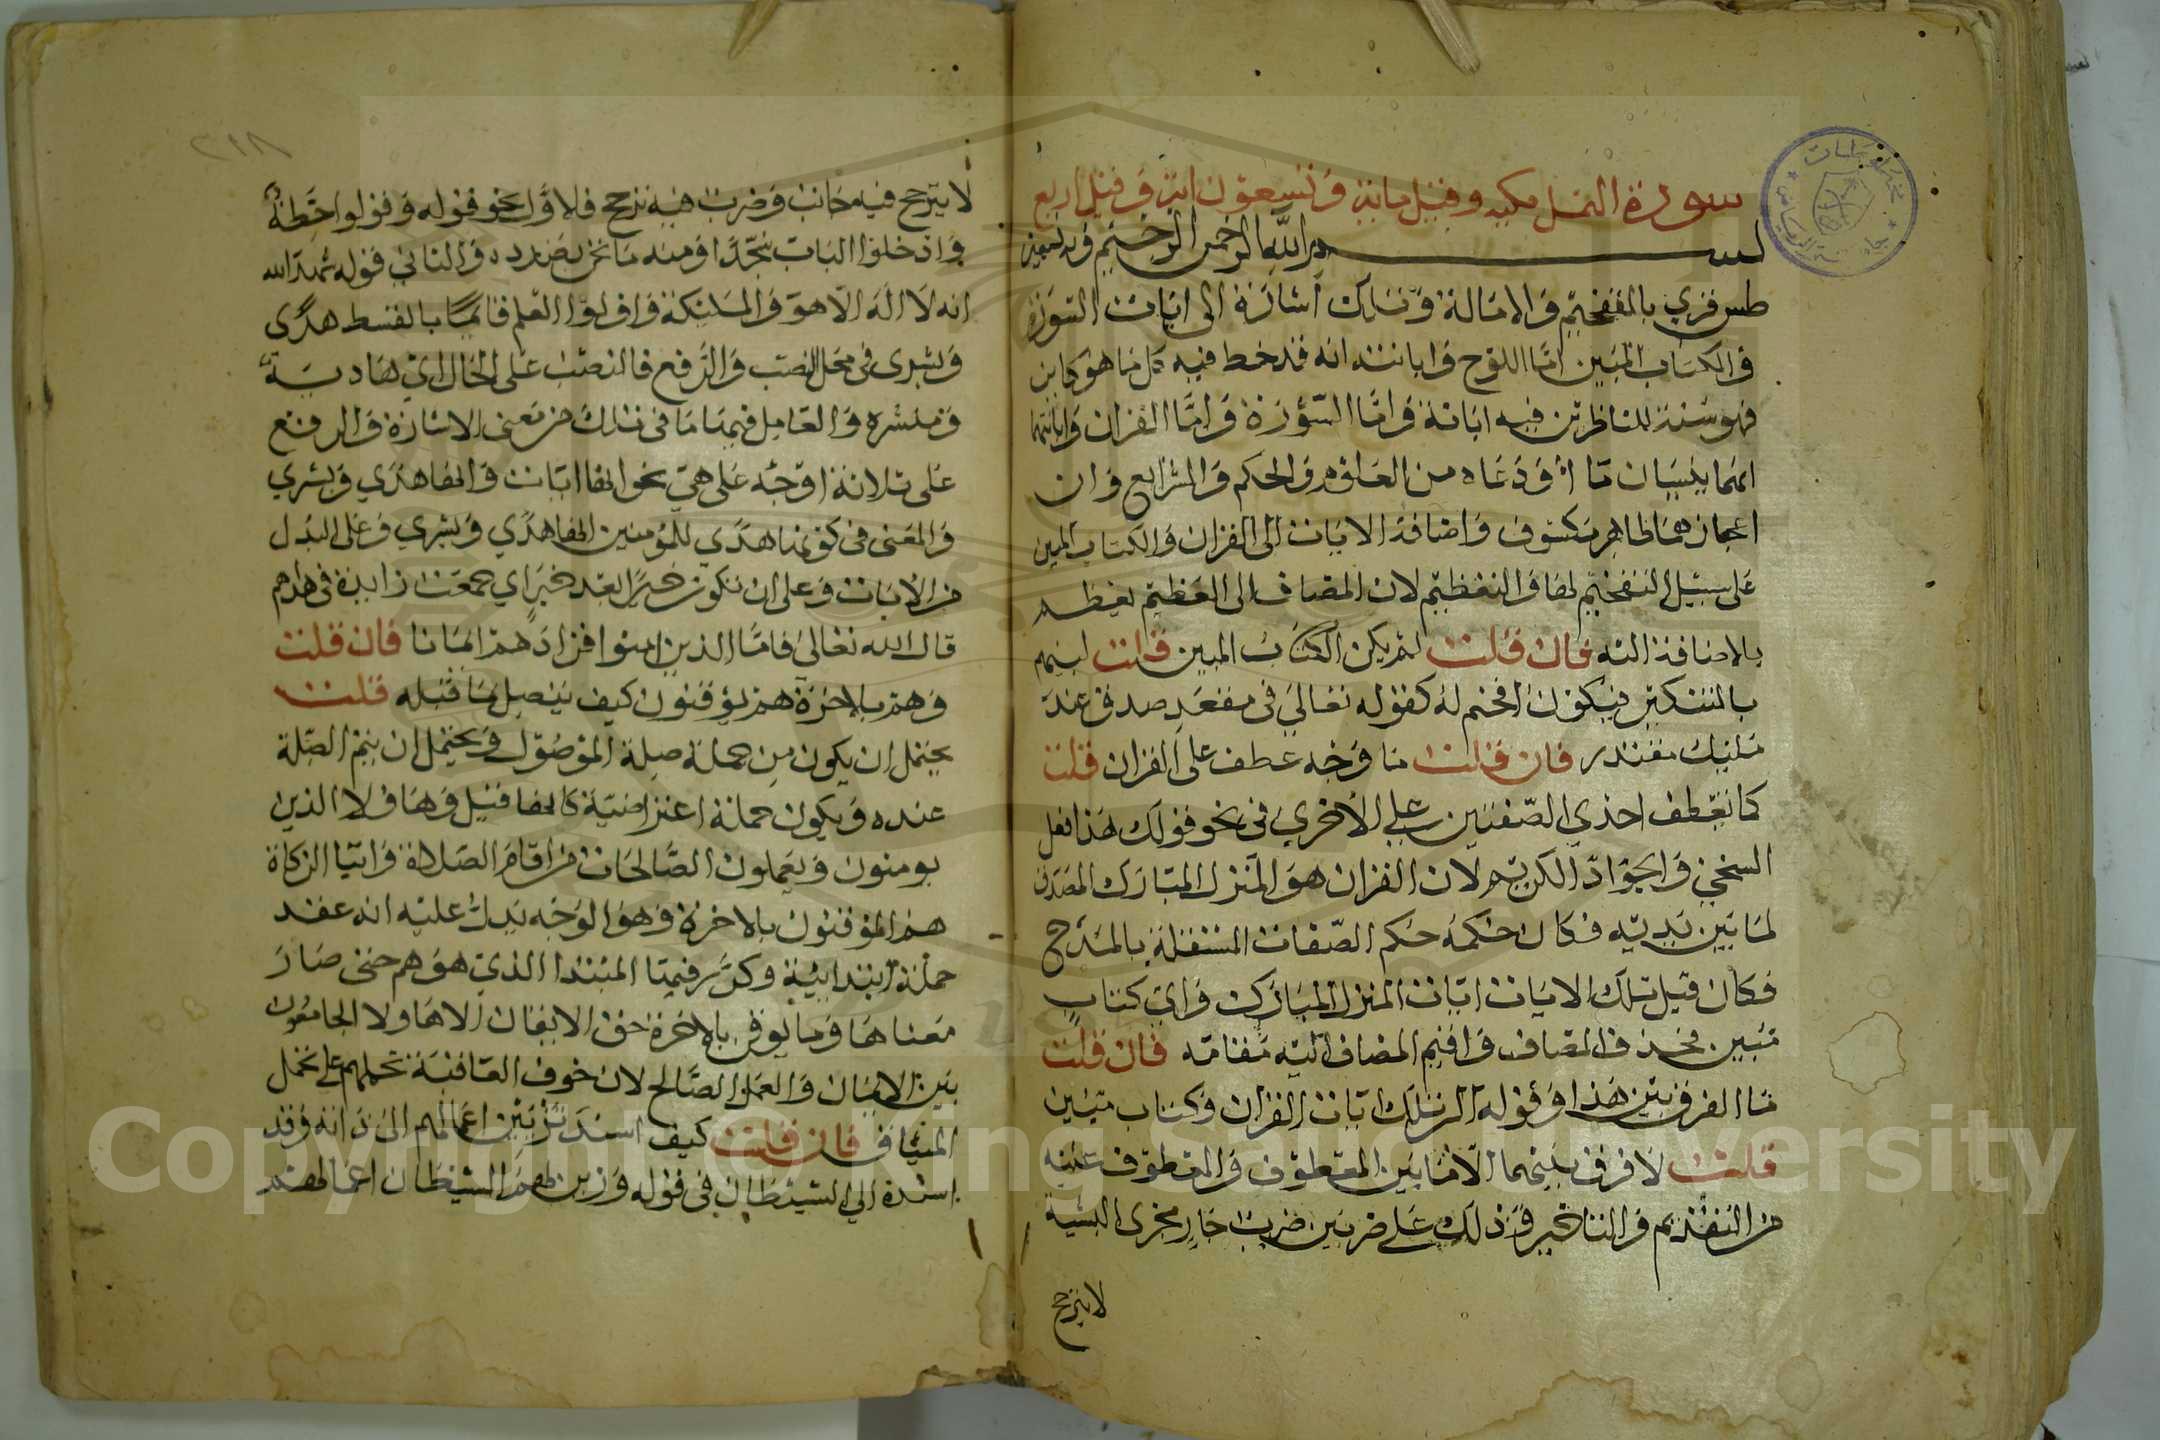 سورة النمل مكيه وقيل مايتة وتسعون اية وقيل اربع
بسم الله الرحمن الرحيم وبه نستعين
طس قري بالتفخيم والامالة وتلك اشارة الى ايات السورة
والكتاب المبين اما اللوح وابانته انه قد خط فيه كل ما هو كاين
فهو يبينه للناظرين فيه ابانة واما السورة واما القران وابانتهما
انهما يبينان ما اودعاه من العلوم والحكم والشرايع وان
اعجازهما ظاهر مكشوف واضافة الايات الى القران والكتاب المبين
على سبيل التفخيم لها والتعظيم لان المضاف الى العظيم يعظم
بالاضافة اليه فان قلت لم يكن الكتاب المبين قلت ليبهم
بالتنكير فيكون افخم له كقوله تعالى في مقعد صدق عند
مليك مقتدر فان قلت ما وجه عطف على القران قلت
كما تعطف احدي الصفتين على الاخري في نحو قولك هذا فعل
السخي والجواد الكريم لان القران هو المنزل المبارك المصدق
لما بين يديه فكان حكمه حكم الصفات المستقلة بالمدح
فكان قيل تلك الايات ايات المنزل المبارك واي كتاب
مبين فحذف المضاف واقيم المضاف اليه مقامه فان قلت
ما الفرق بين هذا وقوله الر تلك ايات القران وكتاب مبين
قلت لا فرق بينهما الا ما بين المعطوف والمعطوف عليه
من التقديم والتاخير وذلك على ضربين ضرب جار مجرى التثنية
لا يترجح
٣١٨
لا يترجح فيه جانب وضرب فيه ترجح فالاول نحو قوله وقولوا حطة
وادخلوا الباب سجدا ومنه ما نحن بصدده والثاني قوله شهد الله
انه لا اله الا هو والملئكة واولوا العلم قايما بالقسط هدى
وبشرى في محل النصب والرفع فالنصب على الحال اي هادية
ومبشرة والعامل فيهما ما في تلك من معنى الاشارة والرفع
على ثلاثة اوجه على هي نحو انها ايات وانها هدي وبشري
والمعنى في كونها هدي للمؤمنين انها هدي وبشري وعلى البدل
من الايات وعلى ان تكون خبرا بعد خبر اي جمعت زايدة في هداهم
قال الله تعالى فاما الذين امنوا فزادهم ايمانا فان قلت
وهم بالاخرة هم يوقنون كيف يتصل بما قبله قلت
يحتمل ان يكون من جملة صلة الموصول ويحتمل ان يتم الصلة
عنده ويكون جملة اعتراضية كانها قيل وهاولا الذين
يومنون ويعملون الصالحات من اقام الصلاة وايتا الزكاة
هم الموقنون بالاخرة وهو الوجه يدل عليه انه عقد
جملة ابتدائية وكرر فيها المبتدا الذي هو هم حتى صار
معناها وما يوقن بالاخرة حق الايقان الا هاولا الجامعون
بين الايمان والعمل الصالح لان خوف العاقبة تحملهم على تحمل
المشاق فان قلت كيف اسند تزيين اعمالهم الى ذاته وقد
اسنده الى الشيطان في قوله وزين لهم الشيطان اعمالهم
Copyright © King Saud University